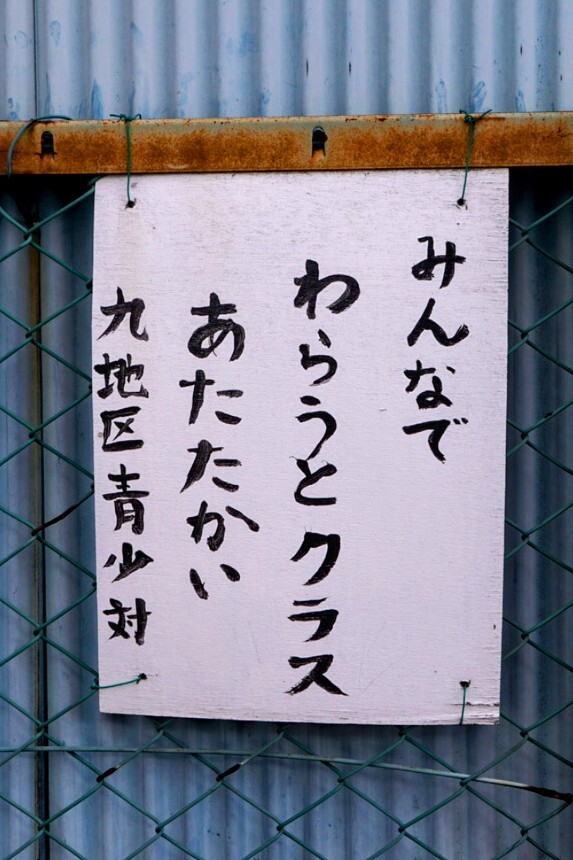 みんなで
わらうとクラス
あたたかい
九地区青少対